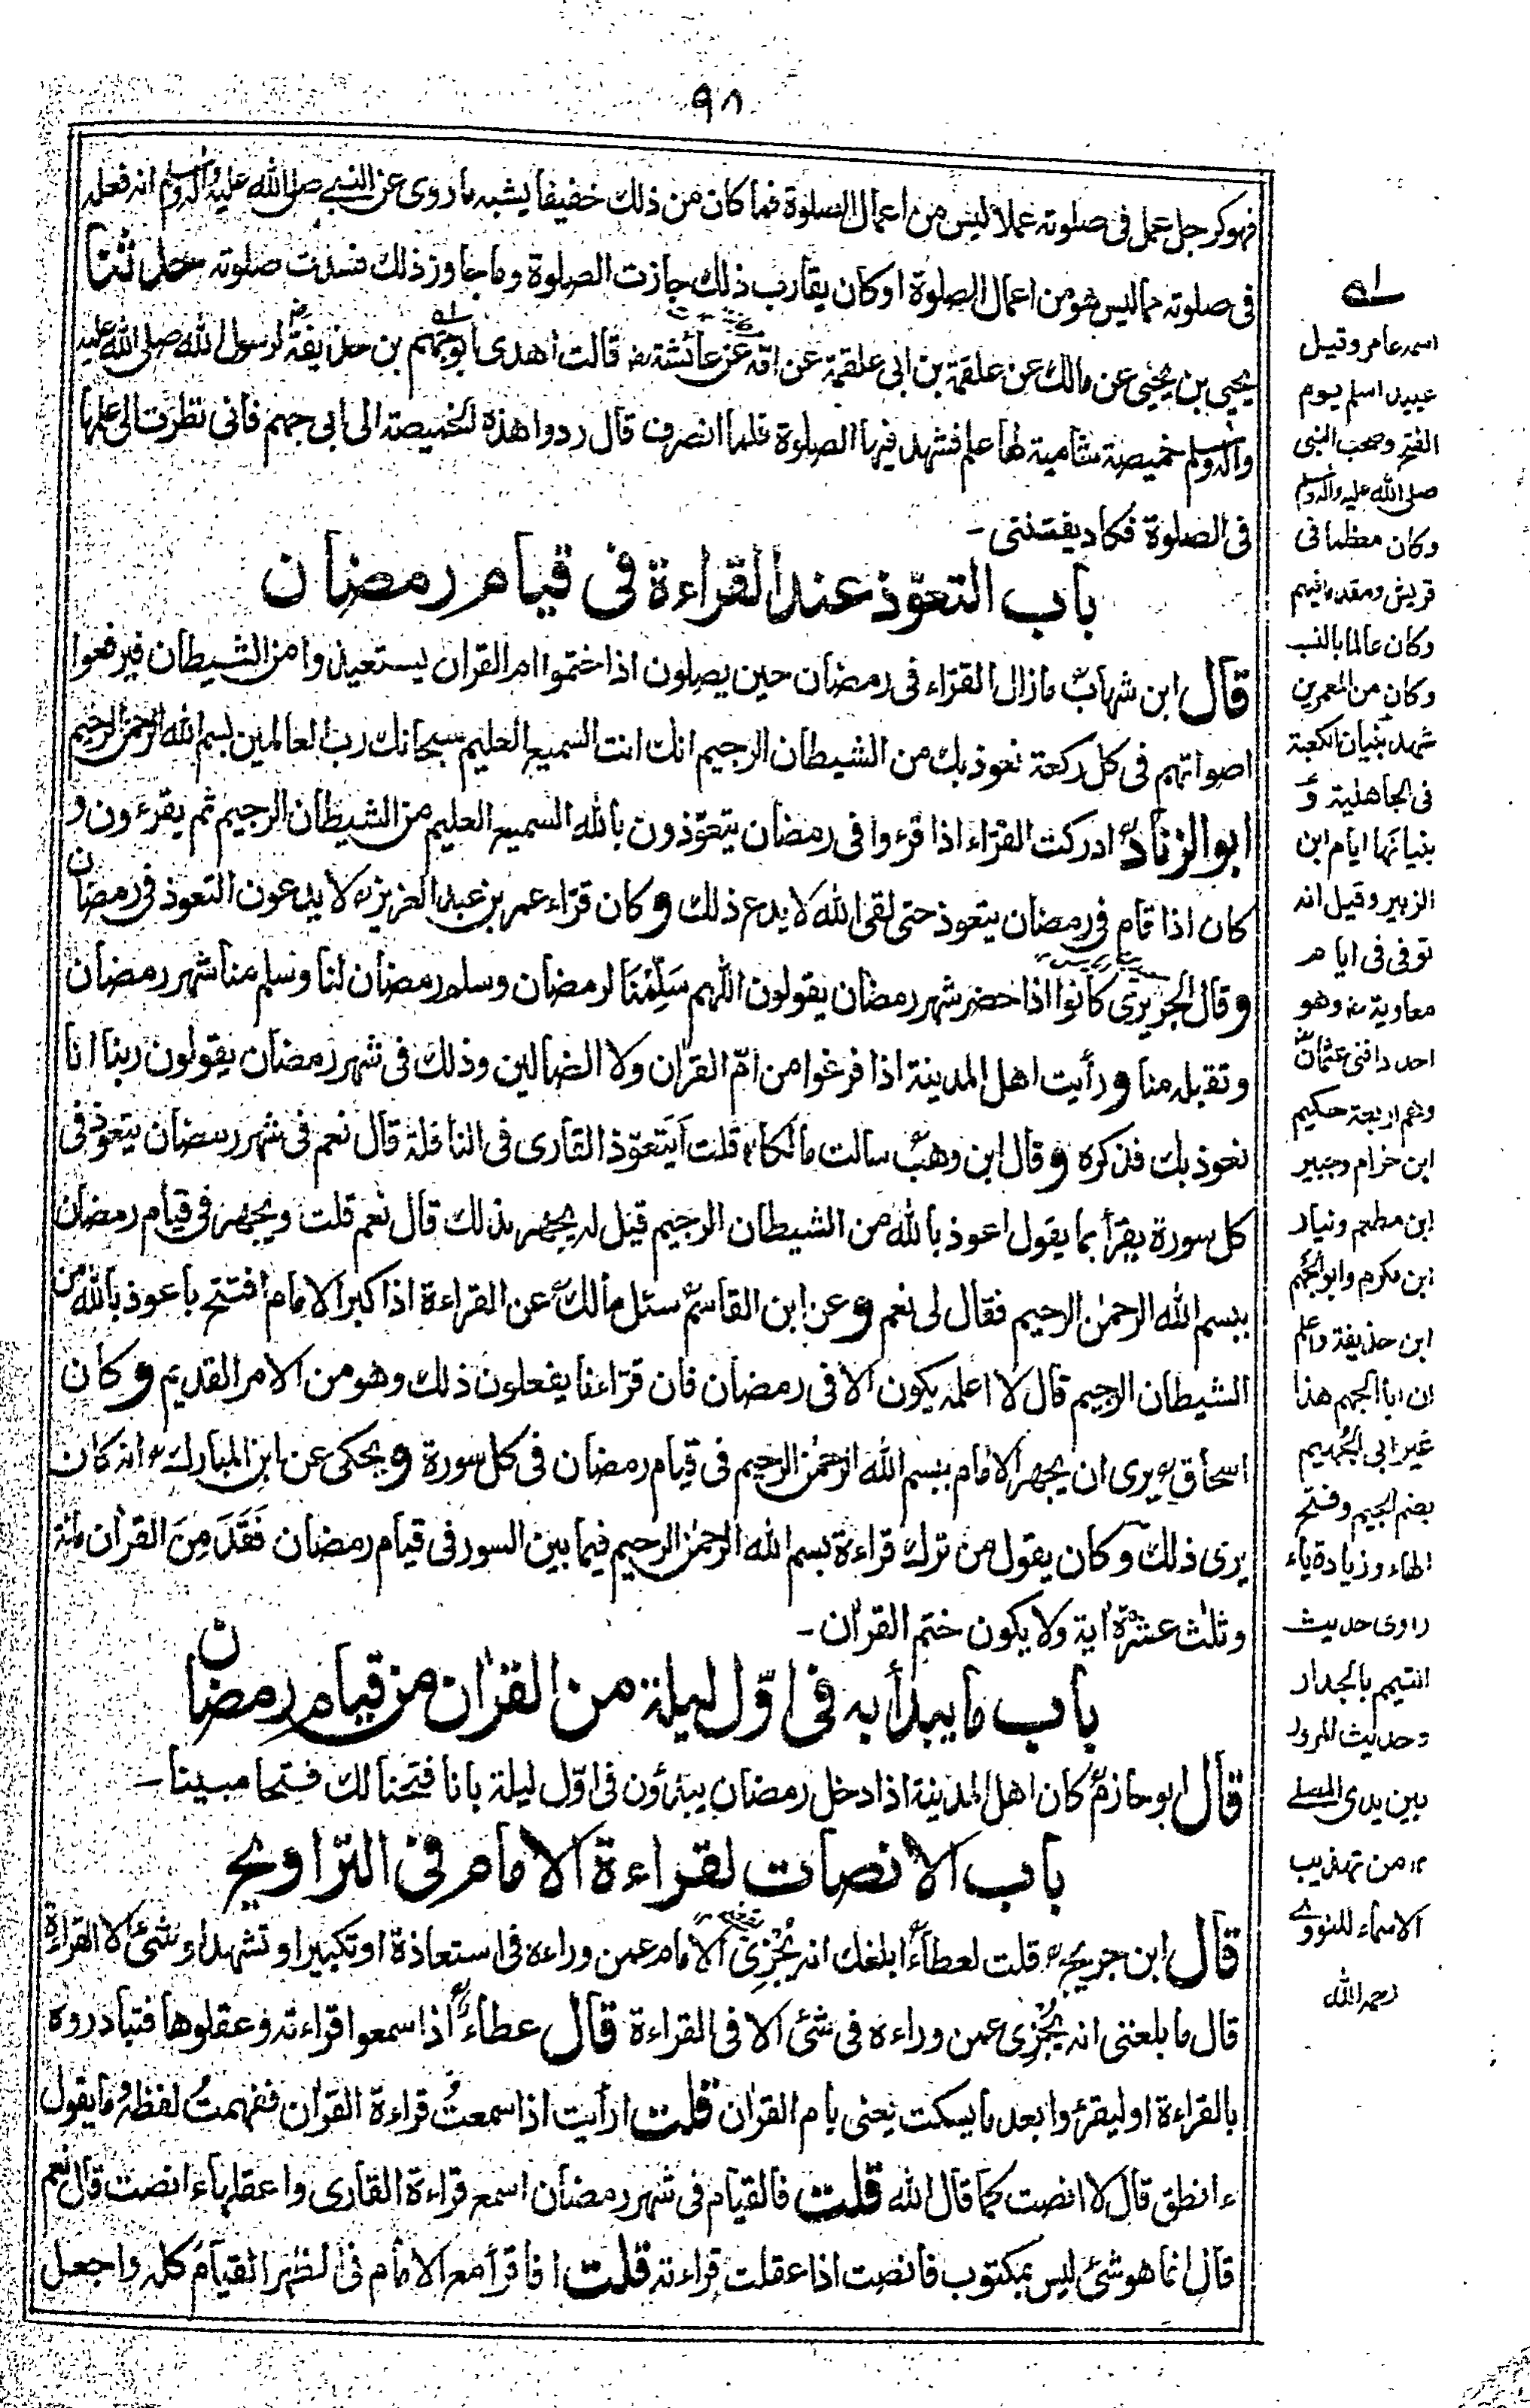 ٩٨
فهو كرجل عمل فى صلوته عملا ليس من اعمال الصلوة فما كان من ذلك خفيفا يشبه ما روى عن النبي صلى الله عليه وآله وسلم انه فعله
فى صلوته مما ليس هو من اعمال الصلوة او كان يقارب ذلك جازت الصلوة وما جاوز ذلك فسدت صلوته حدثنا
يحيى بن يحيى عن مالك عن علقمة بن ابى علقمة عن امه عن عائشة رضـ قالت اهدى ابو جهم بن حذيفة رضـ لرسول الله صلى الله عليه
وآله وسلم خميصة شامية لها علم فشهد فيها الصلوة فلما انصرف قال ردوا هذه الخميصة الى ابى جهم فانى نظرت الى علمها
فى الصلوة فكاد يفتننى -
باب التعوّذ عند القراءة فى قيام رمضان
قال ابن شهابؒ ما زال القرّاء فى رمضان حين يصلون اذا ختموا ام القران يستعيذوا من الشيطان فيرفعوا
اصواتهم فى كل ركعة نعوذ بك من الشيطان الرجيم انك انت السميع العليم سبحانك رب العالمين بسم الله الرحمن الرحيم
ابو الزنادؒ ادركت القرّاء اذا قرءوا فى رمضان يتعوّذون بالله السميع العليم من الشيطان الرجيم ثم يقرءون و
كان اذا قام فى رمضان يتعوذ حتى لقى الله لا يدع ذلك وكان قرّاء عمر بن عبد العزيزؒ لا يدعون التعوذ فى رمضان
وقال الجريرى كانوا اذا حضر شهر رمضان يقولون اللهم سَلِّمْنَا لرمضان وسلم رمضان لنا وسلم منا شهر رمضان
وتقبله منا ورأيت اهل المدينة اذا فرغوا من امّ القران ولا الضالين وذلك فى شهر رمضان يقولون ربنا انا
نعوذ بك فذكره وقال ابن وهبؒ سالت مالكاؒ قلت أيتعوّذ القارى فى النافلة قال نعم فى شهر رمضان يتعوذ فى
كل سورة يقرأ بما يقول اعوذ بالله من الشيطان الرجيم قيل له يجهر بذلك قال نعم قلت ويجهر فى قيام رمضان
ببسم الله الرحمن الرحيم فقال لى نعم وعن ابن القاسمؒ سئل مالكؒ عن القراءة اذا كبر الامام افتتح باعوذ بالله من
الشيطان الرجيم قال لا اعلمه يكون الا فى رمضان فان قرّاءنا يفعلون ذلك وهو من الامر القديم وكان
اسحاقؒ يرى ان يجهر الامام ببسم الله الرحمن الرحيم فى قيام رمضان فى كل سورة ويحكى عن ابن المباركؒ انه كان
يرى ذلك وكان يقول من ترك قراءة بسم الله الرحمن الرحيم فيما بين السور فى قيام رمضان فَقَدَ مِنَ القران مائة
وثلث عشرة اية ولا يكون ختم القران -
باب ما يبدأ به فى اوّل ليلة من القران من قيام رمضان
قال ابو حازمؒ كان اهل المدينة اذا دخل رمضان يبدؤن فى اوّل ليلة بانا فتحنا لك فتحا مبينا -
باب الانصات لقراءة الامام فى التراويح
قال ابن جريجؒ قلت لعطاءؒ ابلغك انه يُجْزِى الامام عمن وراءه فى استعاذة او تكبير او تشهد او شئ الا القراءة
قال ما بلغنى انه يُجْزِى عمن وراءه فى شئ الا فى القراءة قال عطاءؒ اذا سمعوا قراءته وعقلوها فتبادروه
بالقراءة او ليقرءوا بعد ما يسكت يعنى بام القران قلت ارأيت اذا سمعتُ قراءة القران ففهمتُ لفظه وما يقول
ءانطق قال لا انصت كما قال الله قلت فالقيام فى شهر رمضان اسمع قراءة القارى واعقلها ءانصت قال نعم
قال انما هو شئ ليس بمكتوب فانصت اذا عقلت قراءته قلت افاقرأ مع الامام فى الظهر القيام كله واجعل
اسمه عامر وقيل
عبيد اسلم يوم
الفتح وصحب النبى
صلى الله عليه وآله وسلم
وكان معظما فى
قريش ومقدما فيهم
وكان عالما بالنسب
وكان من المعمرين
شهد بنيان الكعبة
فى الجاهلية و
بنيانها ايام ابن
الزبير وقيل انه
توفى فى ايام
معاويةرضـ وهو
احد دافنى عثمانؓ
وهم اربعة حكيم
ابن حزام وجبير
ابن مطعم ونيار
ابن مكرم وابو الجهم
ابن حذيفة واعلم
ان ابا الجهم هذا
غير ابى الجُهيم
بضم الجيم وفتح
الهاء وزيادة ياء
راوى حديث
التيمم بالجدار
وحديث المرور
بين يدى المصلے
١٢ من تهذيب
الاسماء للنووے
رحمه الله